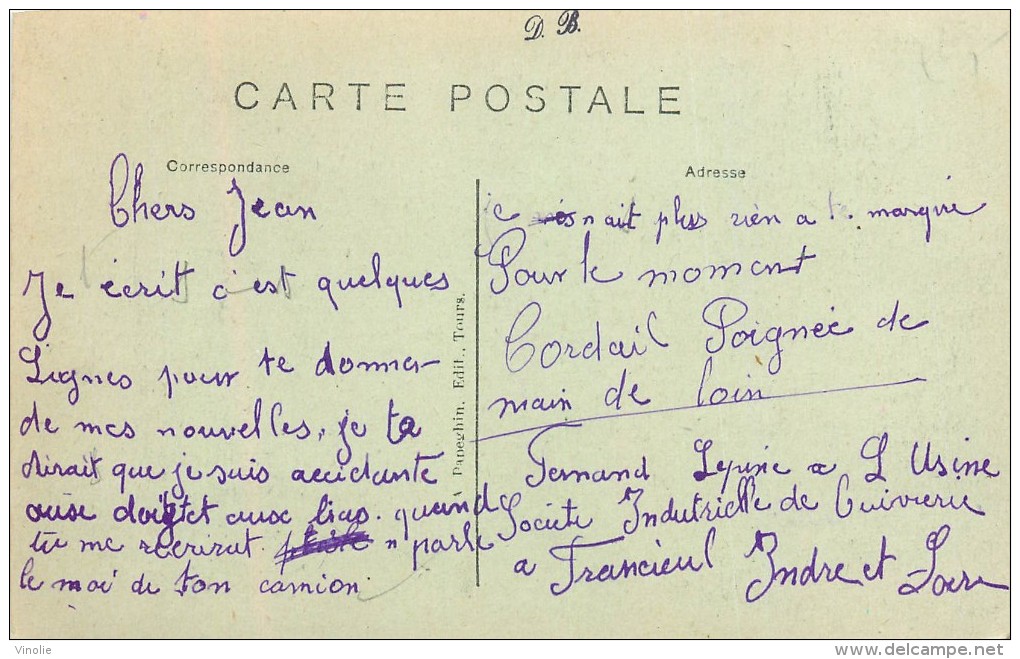 D. B.
CARTE POSTALE
Correspondance
Chers Jean
Je écrit c'est quelques
Lignes pour te donner
de mes nouvelles, je te
dirait que je suis accidante
ause doigtet ause bras. quand
tu me recrirat n parle
le moi de ton camion.
Papeghin, Edit., Tours.
Adresse
je n ait plus rien a marquie
Pour le moment
Cordail Poignée de
main de loin
Fernand Lepine a L Usine
Societe Indutrielle de Cuivrerie
a Francieul Indre et Loire
Vinolie
delcampe.net